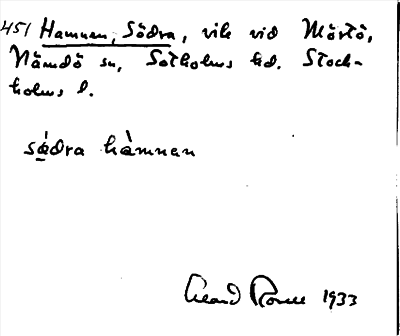 451 Hamnen, Södra, vik vid Mörtö,
Nämdö sn, Sotholms hd. Stock-
holms l.
södra hàmnan
1933